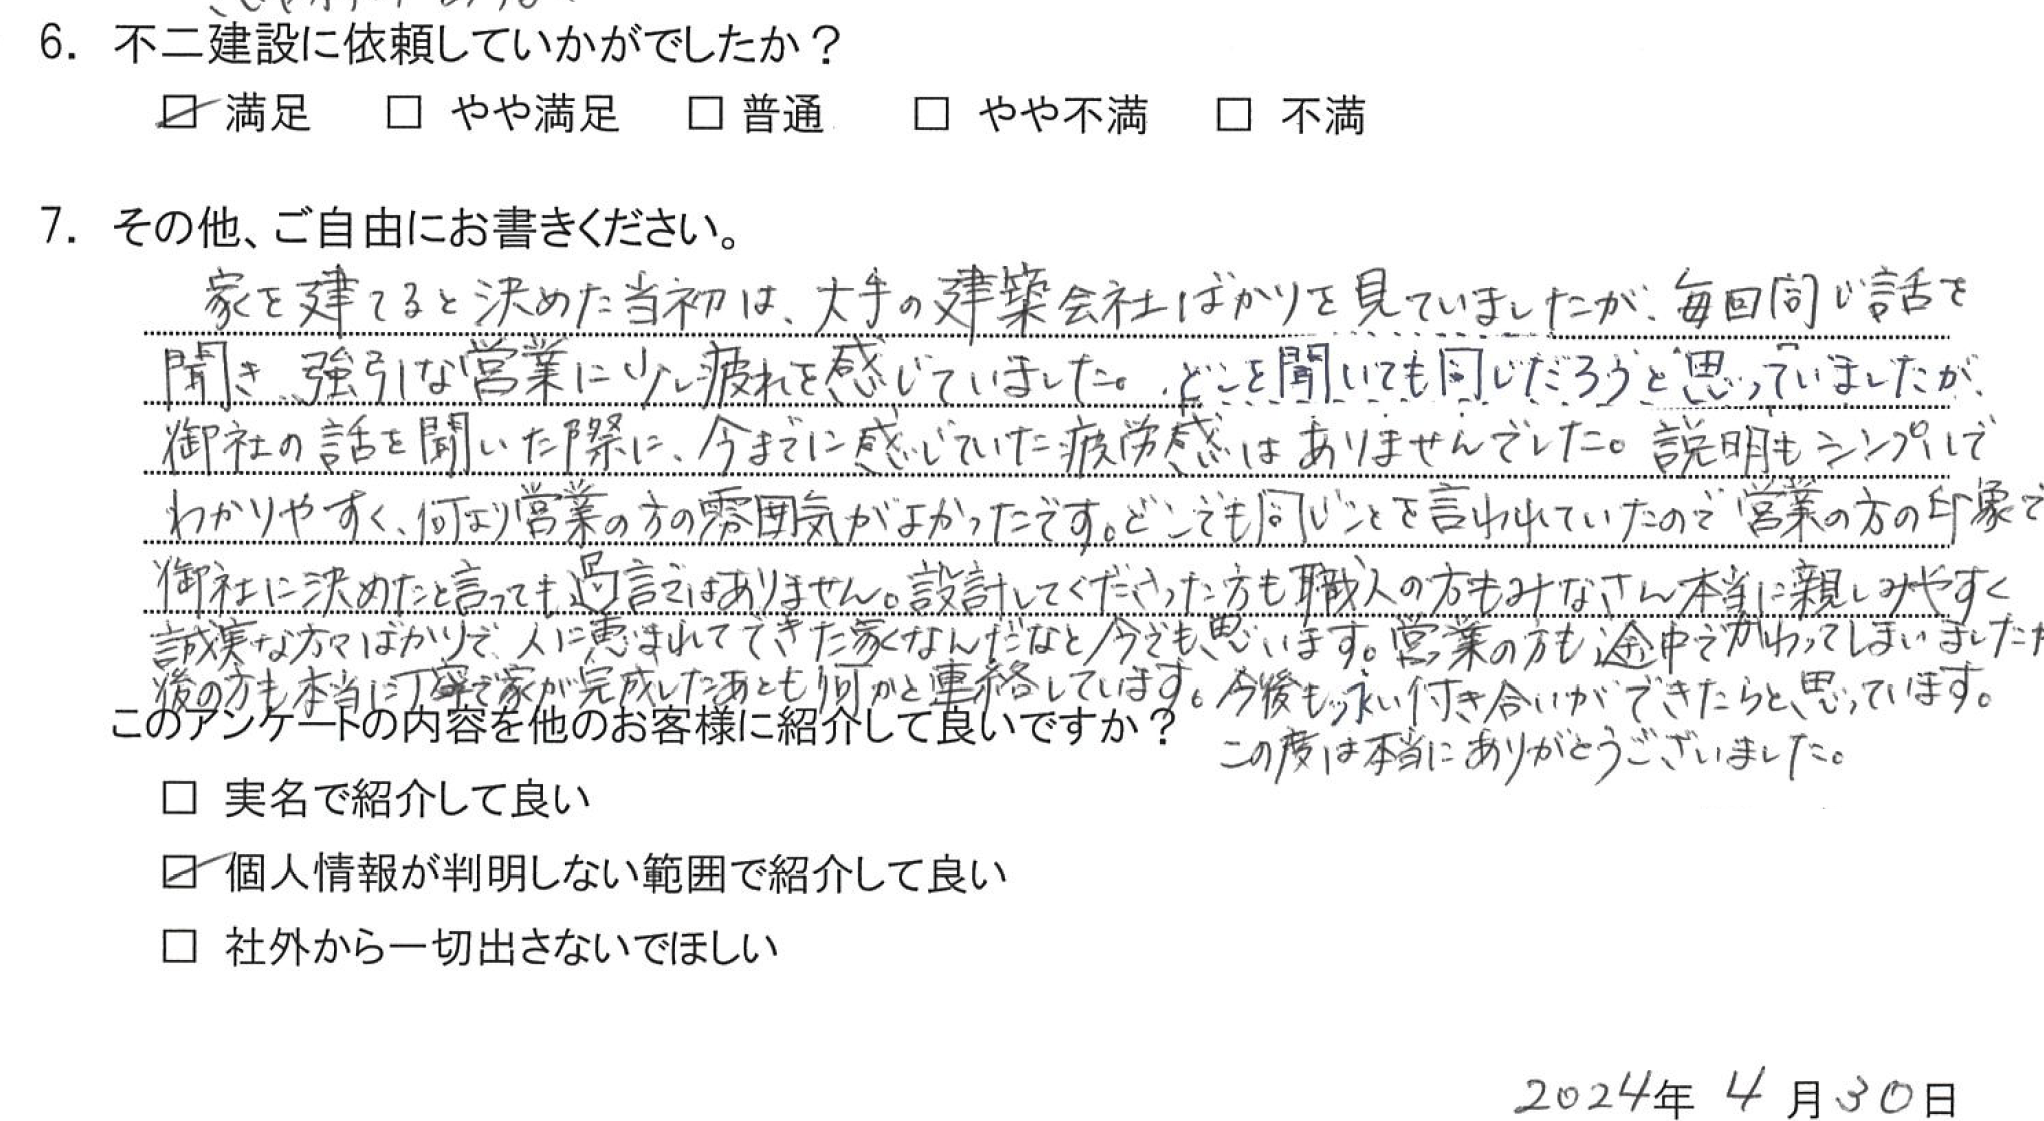 6. 不二建設に依頼していかがでしたか？
☑ 満足 □ やや満足 □ 普通 □ やや不満 □ 不満
7. その他、ご自由にお書きください。
家を建てると決めた当初は、大手の建築会社ばかりを見ていましたが、毎回同じ話を
聞き、強引な営業に少し疲れを感じていました。どこを聞いても同じだろうと思っていましたが、
御社の話を聞いた際に、今までに感じていた疲労感はありませんでした。説明もシンプルで
わかりやすく、何より営業の方の雰囲気がよかったです。どこでも同じことを言われていたので営業の方の印象で
御社に決めたと言っても過言ではありません。設計してくださった方も職人の方もみなさん本当に親しみやすく
誠実な方々ばかりで、人に恵まれてできた家なんだなと今でも思います。営業の方も途中でかわってしまいましたが
後の方も本当に丁寧で家が完成したあとも何かと連絡しています。今後も永い付き合いができたらと思っています。
この度は本当にありがとうございました。
このアンケートの内容を他のお客様に紹介して良いですか？
□ 実名で紹介して良い
☑ 個人情報が判明しない範囲で紹介して良い
□ 社外から一切出さないでほしい
2024年 4月30日